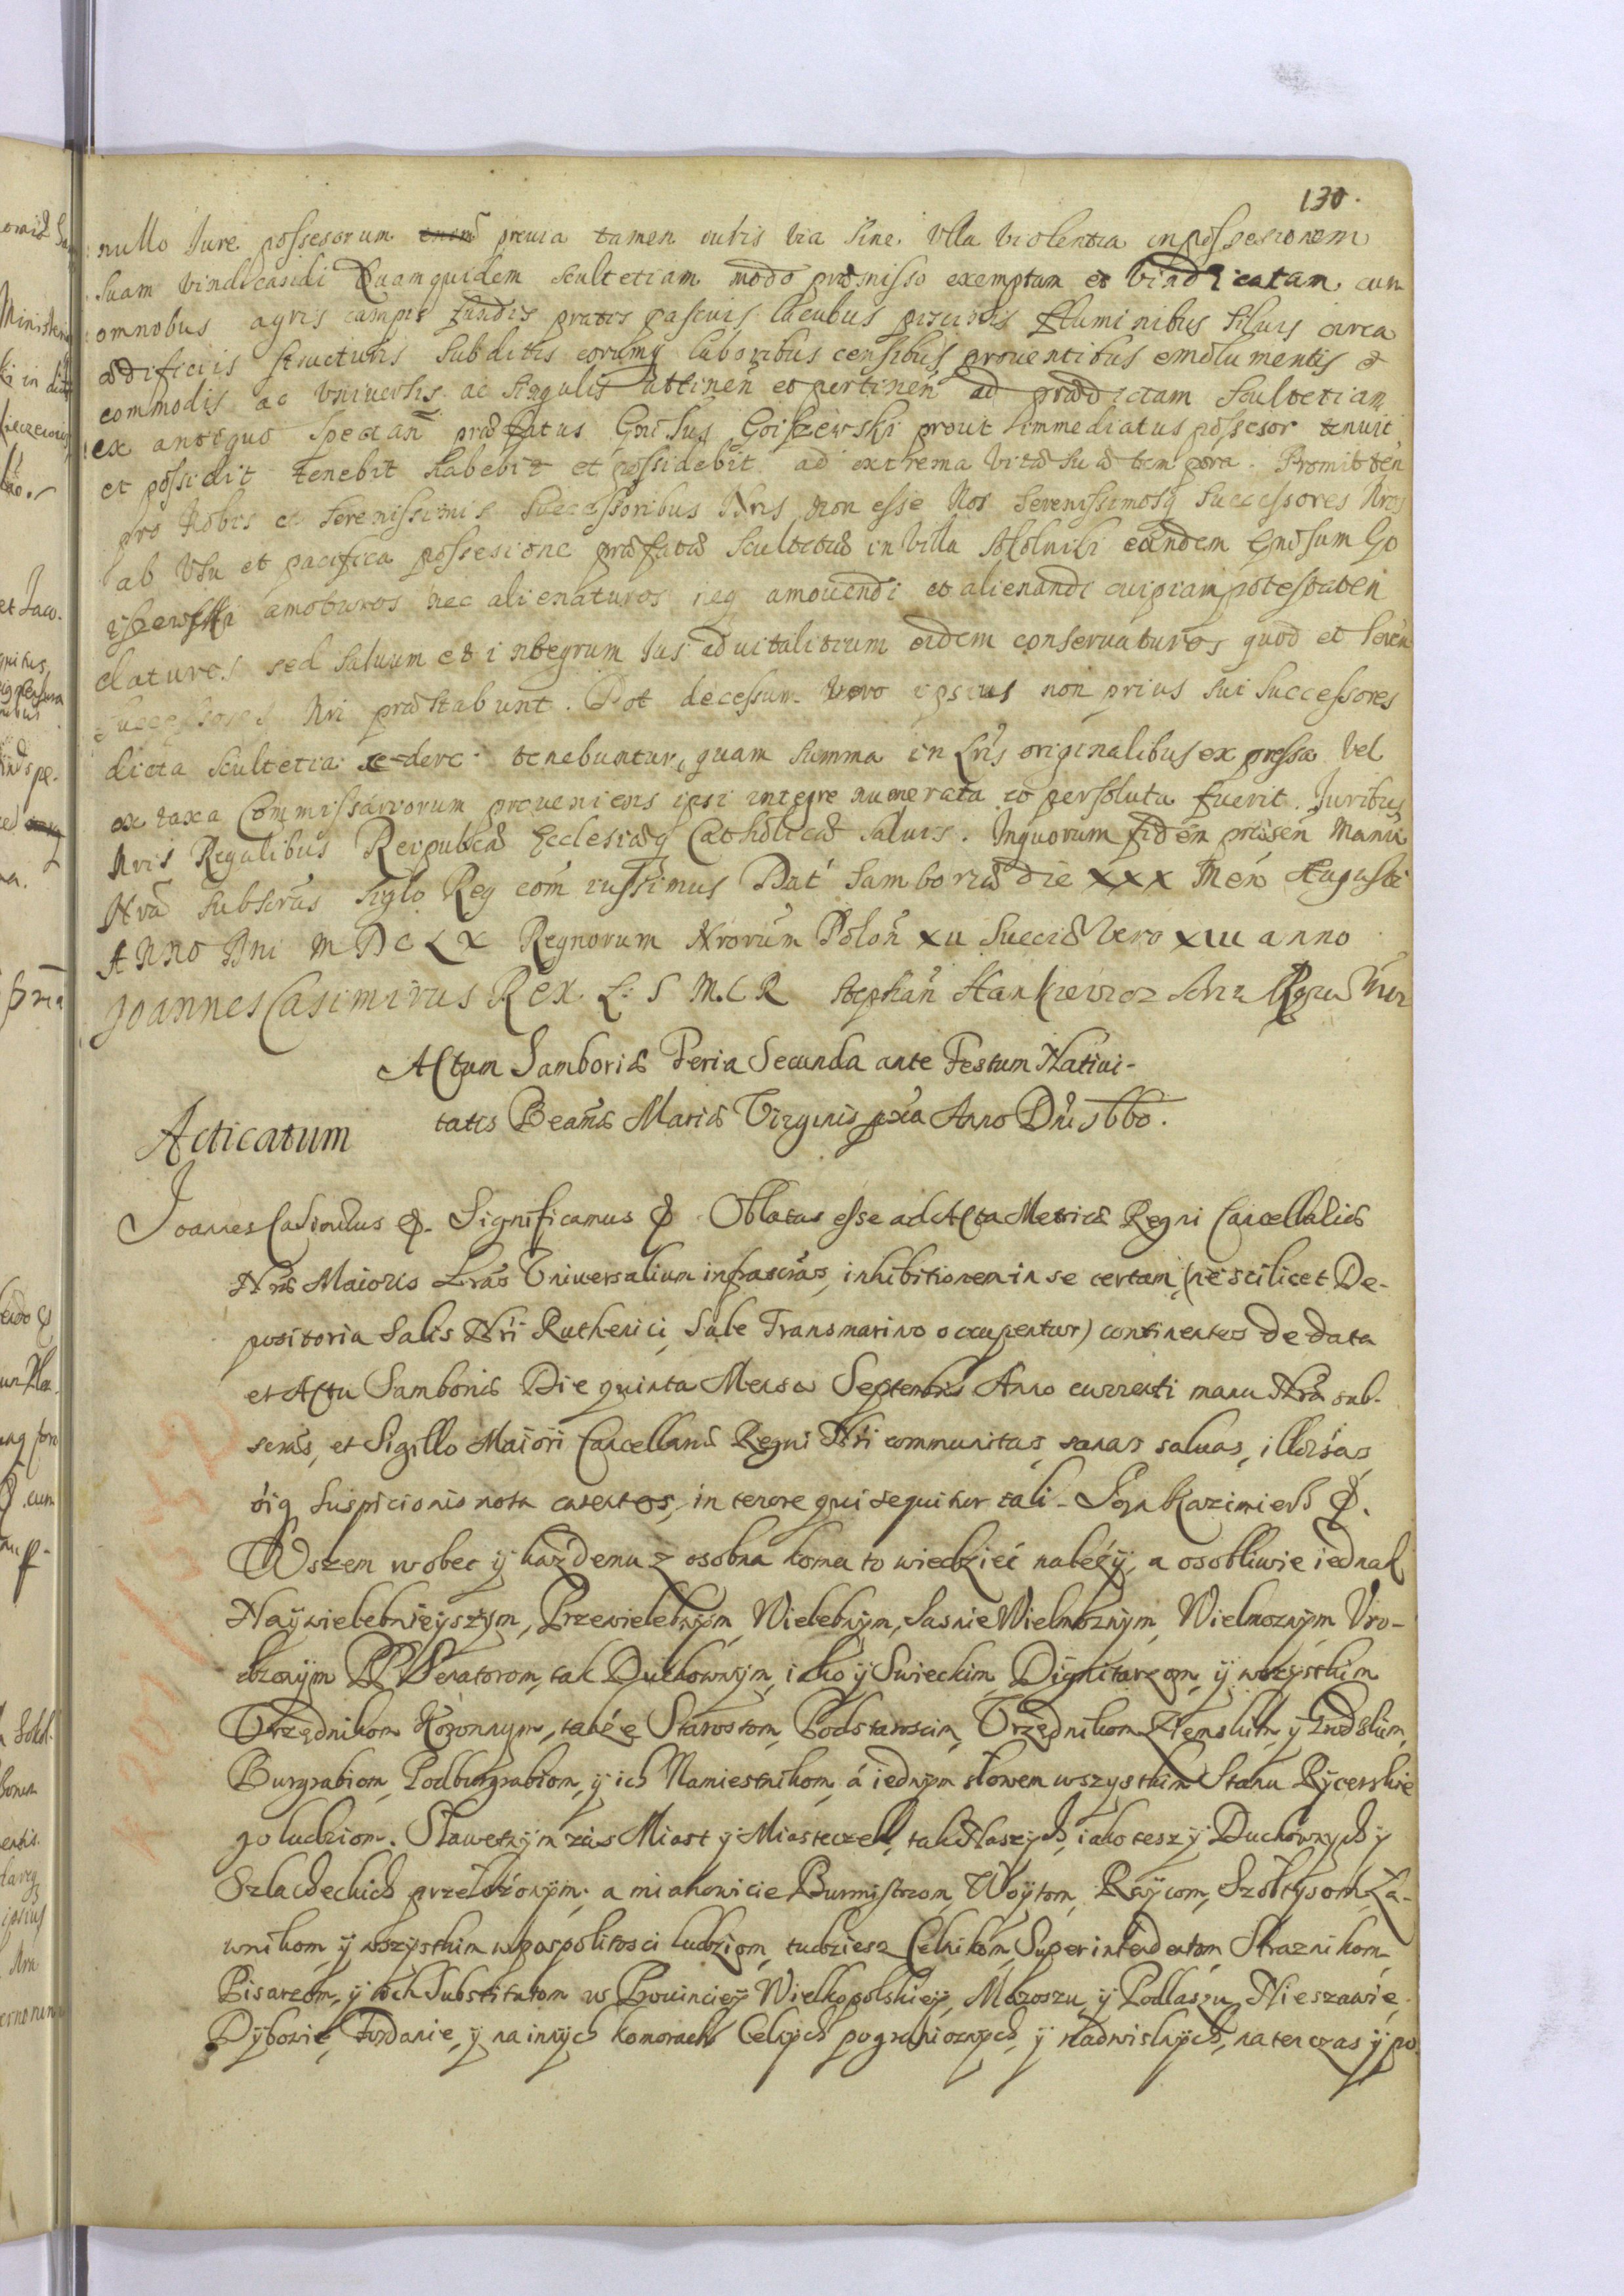 130.
nullo Iure possesorum præuia tamen iuris via sine vlla violentia in possesionem
suam vindicandi Quamquidem scultetiam modo præmisso exemptam et vindicatam cum
omnobus agris campis fundis pratis pascuis lacubus piscinis fluminibus siluis area
ædificiis structuris subditis eorumq laboribus censibus prouentibus emolumentis et
commodis ac vniuersis ac singulis attinen et pertinen ad prædictam scultetiam
ex antiquo spectan præfatus Gnosus Goiszewski prout immediatus possesor tenuit
et possidit tenebit habebit et possidebit ad extrema vitæ suæ tempora. Promitten
pro Nobis et serenissimis successoribus Nris non esse Nos serenissimosq successores Nros
ab vsu et pacifica possesione præfatæ scultetiæ in villa Sokolniki eundem Gnosum Go
iszewski amoturos nec alienaturos neq amouendi et alienandi cuipiam potestatem
daturos sed saluum et integrum Ius aduitalitium eidem conseruaturos quod et seren
successores Nri præstabunt. Pot decessum vero ipsius non prius sui successores
dicta scultetia cedere tenebuntur, quam summa in Lris originalibus expressa vel
ex taxa Commissariorum proueniens ipsi integre numerata et persoluta fuerit. Iuribus
Nris Regalibus Reipublcæ Ecclesiæq Catholicæ saluis. Inquorum fidem præsen manu
Nra subscras siglo Reg com iussimus Dat Samboriæ die XXX Men Augusti
Anno Dni MDCLX Regnorum Nrorum Polon XII Sueciæ vero XIII anno
Joannes Casimirus Rex L: S M.C R Stephan Hankiewicz
Actum Samboriæ Feria Secunda ante Festum Natiui-
tatis Beatæ Mariæ Virginis pxia Anno Dni 1660.
Acticatum
Joannes Casimirus &. Significamus & Oblatas esse ad Acta Metricæ Regni Cancellariæ
Nræ Maioris Lras Vniversalium infrascras, inhibitionem in se certam, (ne scilicet De-
positoria Salis Nri Ruthenici, Sale Transmarino occupentur) continentes de data
et Actu Samboriæ Die quinta Mensis Septembris Anno currenti manu Nra sub-
scras, et Sigillo Maiori Cancellariæ Regni Nri communitas, sanas saluas, illæsas
oiq suspicionis nota carentes, in tenore qui sequitur tali. Jan Kazimierz &.
Wszem wobec ÿ każdemu z osobna komu to wiedzieć należÿ, a osobliwie iednak
Naÿwielebnieÿszÿm, Przewielebnÿm, Wielebnÿm, JasnieWielmoznÿm, Wielmoznÿm Vro-
dzonÿm PP. Senatorom, tak Duchownÿm, iako ÿ Swieckim, Dignitarzom, ÿ wszystkim
Vrzędnikom Koronnym, także Starostom, Podstaroscim, Vrzędnikom Ziemskim, ÿ Grodskim,
Burgrabiom, Podburgrabiom, ÿ ich Namiestnikom, á iednÿm słowem wszystkim Stanu Rÿcerskie
go ludziom. Sławetnÿm zas Miast ÿ Miasteczek, tak Naszÿch, iako tesz ÿ Duchownych ÿ
Szlacheckich przełożonÿm, a mianowicie Burmistrzom, Woÿtom, Raÿcom, Szołtÿsom, Ła-
wnikom, ÿ wszystkim w pospolitosci ludziom, tudziesz Celnikom, Superintendentom, Straznikom,
Pisarzom, ÿ ich Substitutom w Prouincieÿ Wielkopolskieÿ, Mazoszu, ÿ Podlaszu, Nieszawie,
Dÿbowie, Fordanie, ÿ na innÿch komorach Celnÿch pogranicznÿch, ÿ nadwislnÿch, na ten czas ÿ po